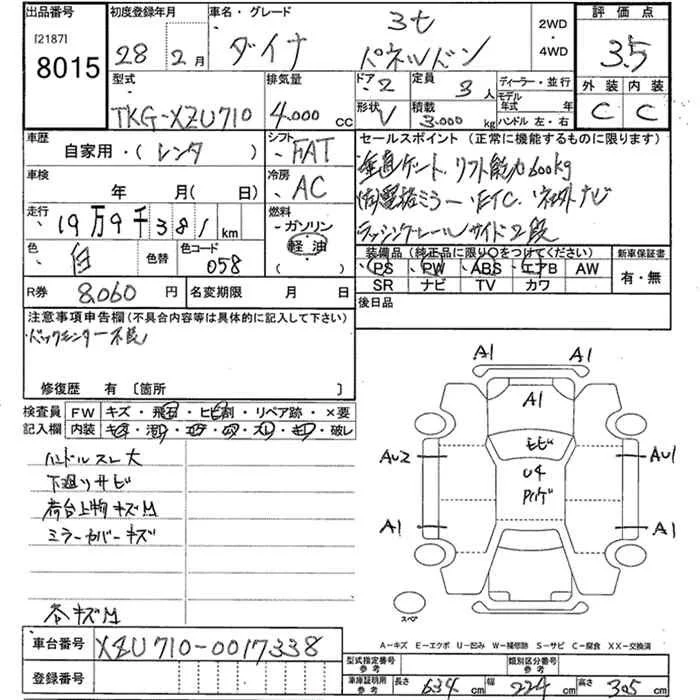 出品番号
[2187]
8015
初度登録年月
28年2月
車名・グレード
3t
ダイナ パネルバン
2WD
・
4WD
評価点
3.5
外装 内装
C C
型式
TKG-XZU710
排気量
4.000 cc
ドア 2
定員 3人
形状 V
積載 3.000 kg
ディーラー・並行
モデル年式 年
ハンドル 左・右
車歴
自家用・(レンタ)
シフト FAT
車検
年 月(日)
冷房 AC
走行
19万9千381 km
燃料
ガソリン
軽油
色 白 色替
色コード 058
R券 8,060円
名変期限 月 日
セールスポイント(正常に機能するものに限ります)
垂直ゲート、リフト能力600kg
ミラー ETC. 社外ナビ
ラッシングレール サイド2段
装備品(純正品に限り○をつけてください)
PS PW ABS エアB AW
SR ナビ TV カワ
新車保証書
有・無
後日品
注意事項申告欄(不具合内容等は具体的に記入して下さい)
バックモニター不良
修復歴 有〔箇所 〕
検査員記入欄
FW キズ・飛石・ヒビ割・リペア跡・×要
内装 キズ・汚レ・コゲ・穴・スレ・キレ・破レ
ハンドルスレ大
下廻りサビ
荷台上物キズM
ミラーカバーキズ
各キズM
A1 A1
A1
ヒビ
AU2 U4 AU1
A1 A1
スペア
A－キズ E－エクボ U－凹み W－補修跡 S－サビ C－腐食 XX－交換済
車台番号 XZU710-0017338
登録番号
型式指定番号 参考
類別区分番号 参考
車庫証明用 参考
長さ 634 cm 幅 224 cm 高さ 305 cm